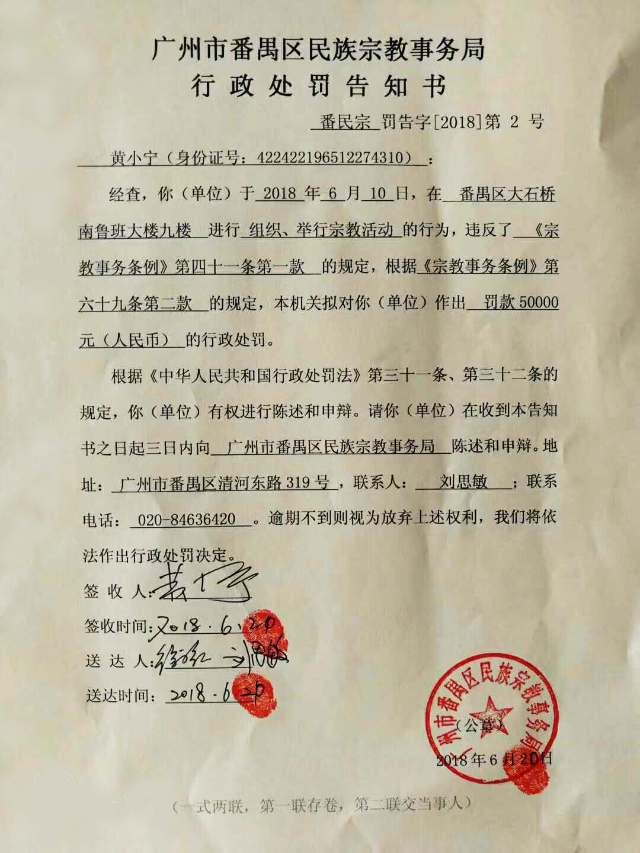 广州市番禺区民族宗教事务局
行政处罚告知书
番民宗 罚告字[2018]第 2 号
黄小宁（身份证号：422422196512274310）：
经查，你（单位）于 2018 年 6 月 10 日，在 番禺区大石桥
南鲁班大楼九楼 进行 组织、举行宗教活动 的行为，违反了 《宗
教事务条例》第四十一条第一款 的规定，根据《宗教事务条例》第
六十九条第二款 的规定，本机关拟对你（单位）作出 罚款 50000
元（人民币） 的行政处罚。
根据《中华人民共和国行政处罚法》第三十一条、第三十二条的
规定，你（单位）有权进行陈述和申辩。请你（单位）在收到本告知
书之日起三日内向 广州市番禺区民族宗教事务局 陈述和申辩。地
址： 广州市番禺区清河东路 319 号 ，联系人： 刘思敏 ；联系
电话： 020-84636420 。逾期不到则视为放弃上述权利，我们将依
法作出行政处罚决定。
签 收 人：
签收时间：2018.6.20
送 达 人： 刘思敏
送达时间： 2018.6.20
广州市番禺区民族宗教事务局
（公章）
2018 年 6 月 20 日
（一式两联，第一联存卷，第二联交当事人）